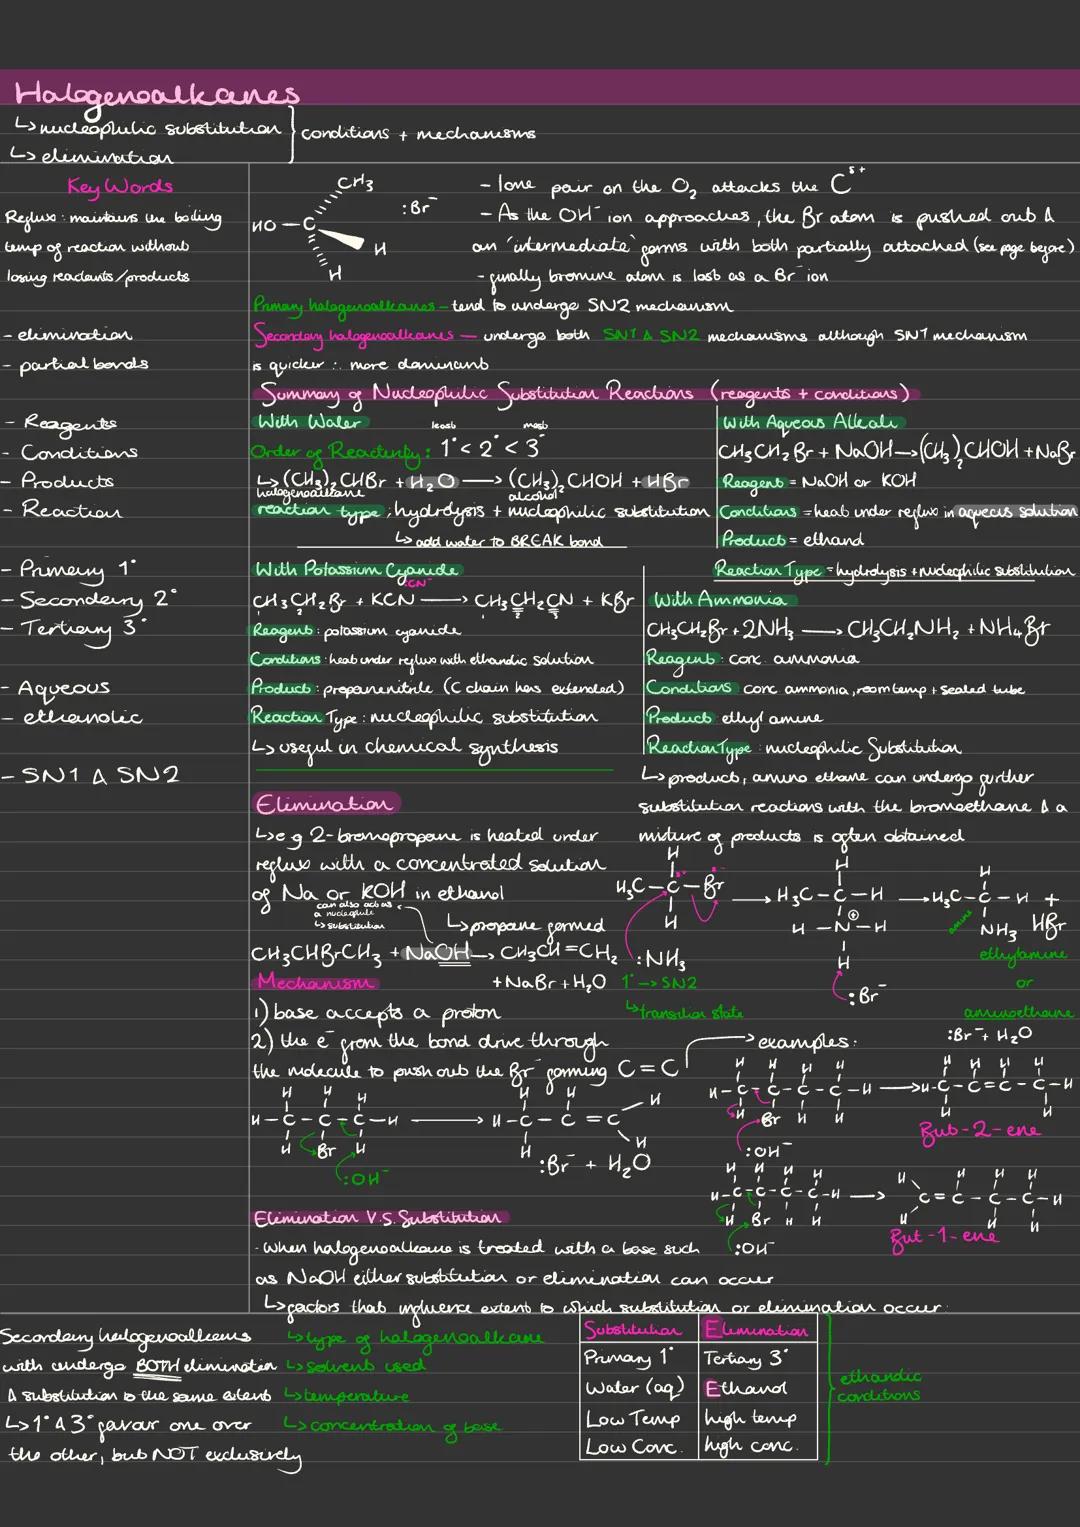 Halogenoalkanes
↳ nucleophilic substitution } conditions + mechanisms
↳ elimination
Key Words
Reflux: maintains the boiling
temp of reaction without
losing reactants/products
- elimination
- partial bonds
- Reagents
- Conditions
- Products
- Reaction
- Primary 1°
- Secondary 2°
- Tertiary 3°
- Aqueous
- ethanolic
- SN1 & SN2
CH3
HO – C
:Br⁻
H
H
- lone pair on the O₂ attacks the C^δ+
- As the OH⁻ ion approaches, the Br atom is pushed out &
an 'intermediate' forms with both partially attached (see page before)
- finally bromine atom is lost as a Br⁻ ion
Primary halogenoalkanes – tend to undergo SN2 mechanism
Secondary halogenoalkanes — undergo both SN1 & SN2 mechanisms although SN1 mechanism
is quicker ∴ more dominant
Summary of Nucleophilic Substitution Reactions (reagents + conditions)
With Water
least most
Order of Reactivity: 1° < 2° < 3°
↳ (CH₃)₂CHBr + H₂O → (CH₃)₂CHOH + HBr
halogenoalkane alcohol
reaction type: hydrolysis + nucleophilic substitution
↳ add water to BREAK bond
With Aqueous Alkali
CH₃CH₂Br + NaOH → (CH₃)₂CHOH + NaBr
Reagent = NaOH or KOH
Conditions = heat under reflux in aqueous solution
Product = ethand
Reaction Type = hydrolysis + nucleophilic substitution
With Potassium Cyanide
:CN⁻
CH₃CH₂Br + KCN → CH₃CH₂CN + KBr
Reagent: potassium cyanide
Conditions: heat under reflux with ethandic solution
Product: propanenitrile (C chain has extended)
Reaction Type: nucleophilic substitution
↳ useful in chemical synthesis
With Ammonia
CH₃CH₂Br + 2NH₃ → CH₃CH₂NH₂ + NH₄Br
Reagent: conc. ammonia
Conditions conc ammonia, room temp + sealed tube
Product: ethyl amine
Reaction Type: nucleophilic Substitution
↳ product, amino ethane can undergo further
substitution reactions with the bromoethane & a
mixture of products is often obtained
H H H
H₃C – C – Br → H₃C – C – H → H₃C – C – H +
H H – N⊕ – H NH₃ HBr
H
amine
:NH₃
:Br⁻
ethylamine
or
aminoethane
1° → SN2
↳ transition state
:Br⁻ + H₂O
Elimination
↳ e.g 2-bromopropane is heated under
reflux with a concentrated solution
of Na or KOH in ethanol
can also act as
a nucleophile
↳ substitution
↳ propane formed
CH₃CHBrCH₃ + NaOH → CH₃CH=CH₂
+ NaBr + H₂O
Mechanism
1) base accepts a proton
2) the e⁻ from the bond drive through
the molecule to push out the Br⁻ forming C=C
H H H
H – C – C – C – H →
H Br H
:OH⁻
H H H
H – C – C = C
H H
:Br⁻ + H₂O
→ examples:
H H H H
H – C – C – C – C – H →
H Br H H
:OH⁻
H H H H
H – C – C = C – C – H
H H
But-2-ene
H H H H
H – C – C – C – C – H →
H Br H H
:OH⁻
H H H H
C = C – C – C – H
H H H
But-1-ene
Elimination V.S. Substitution
- When halogenoalkane is treated with a base such
as NaOH either substitution or elimination can occur
↳ factors that influence extent to which substitution or elimination occur:
Secondary halogenoalkens
with undergo BOTH elimination
& substitution to the same extent
↳ 1° & 3° favour one over
the other, but NOT exclusively
↳ type of halogenoalkane
↳ solvent used
↳ temperature
↳ concentration of base
Substitution Elimination
Primary 1° Tertiary 3°
Water (aq) Ethanol
Low Temp high temp
Low Conc. high conc.
ethandic
conditions